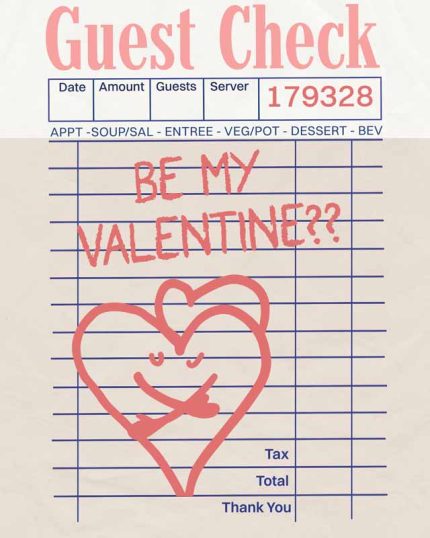 Guest Check
Date Amount Guests Server 179328
APPT -SOUP/SAL - ENTREE - VEG/POT - DESSERT - BEV
BE MY
VALENTINE??
Tax
Total
Thank You